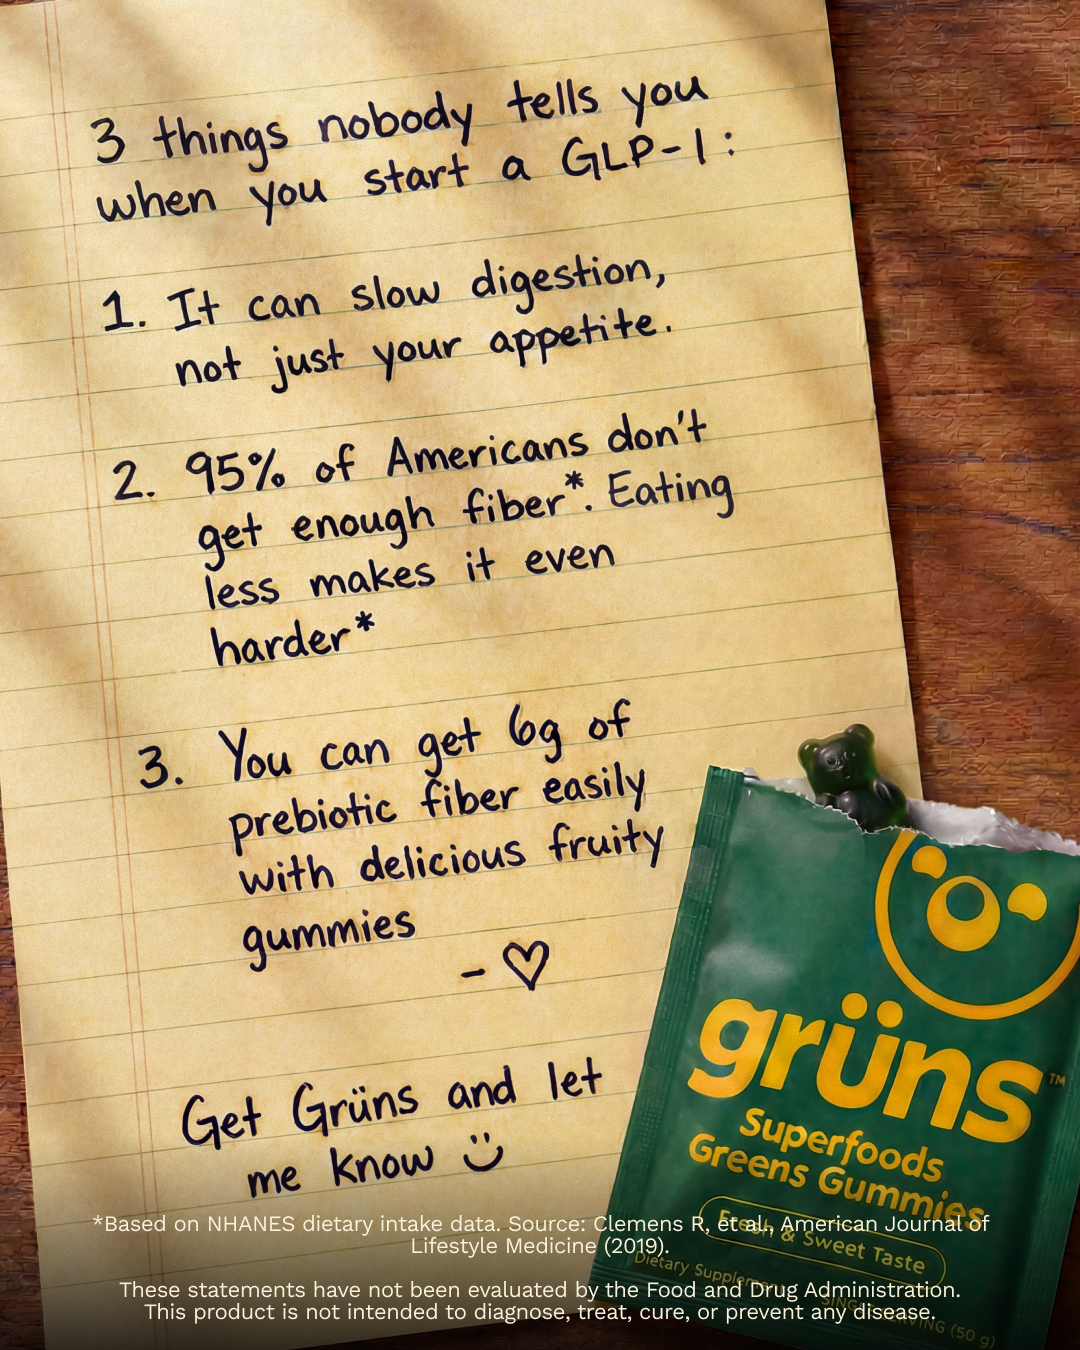 3 things nobody tells you
when you start a GLP-1:
1. It can slow digestion,
not just your appetite.
2. 95% of Americans don't
get enough fiber*. Eating
less makes it even
harder*
3. You can get 6g of
prebiotic fiber easily
with delicious fruity
gummies
- ♡
Get Grüns and let
me know ü
grüns™
Superfoods
Greens Gummies
Fresh & Sweet Taste
Dietary Supplement
SINGLE SERVING (50 g)
*Based on NHANES dietary intake data. Source: Clemens R, et al., American Journal of
Lifestyle Medicine (2019).
These statements have not been evaluated by the Food and Drug Administration.
This product is not intended to diagnose, treat, cure, or prevent any disease.